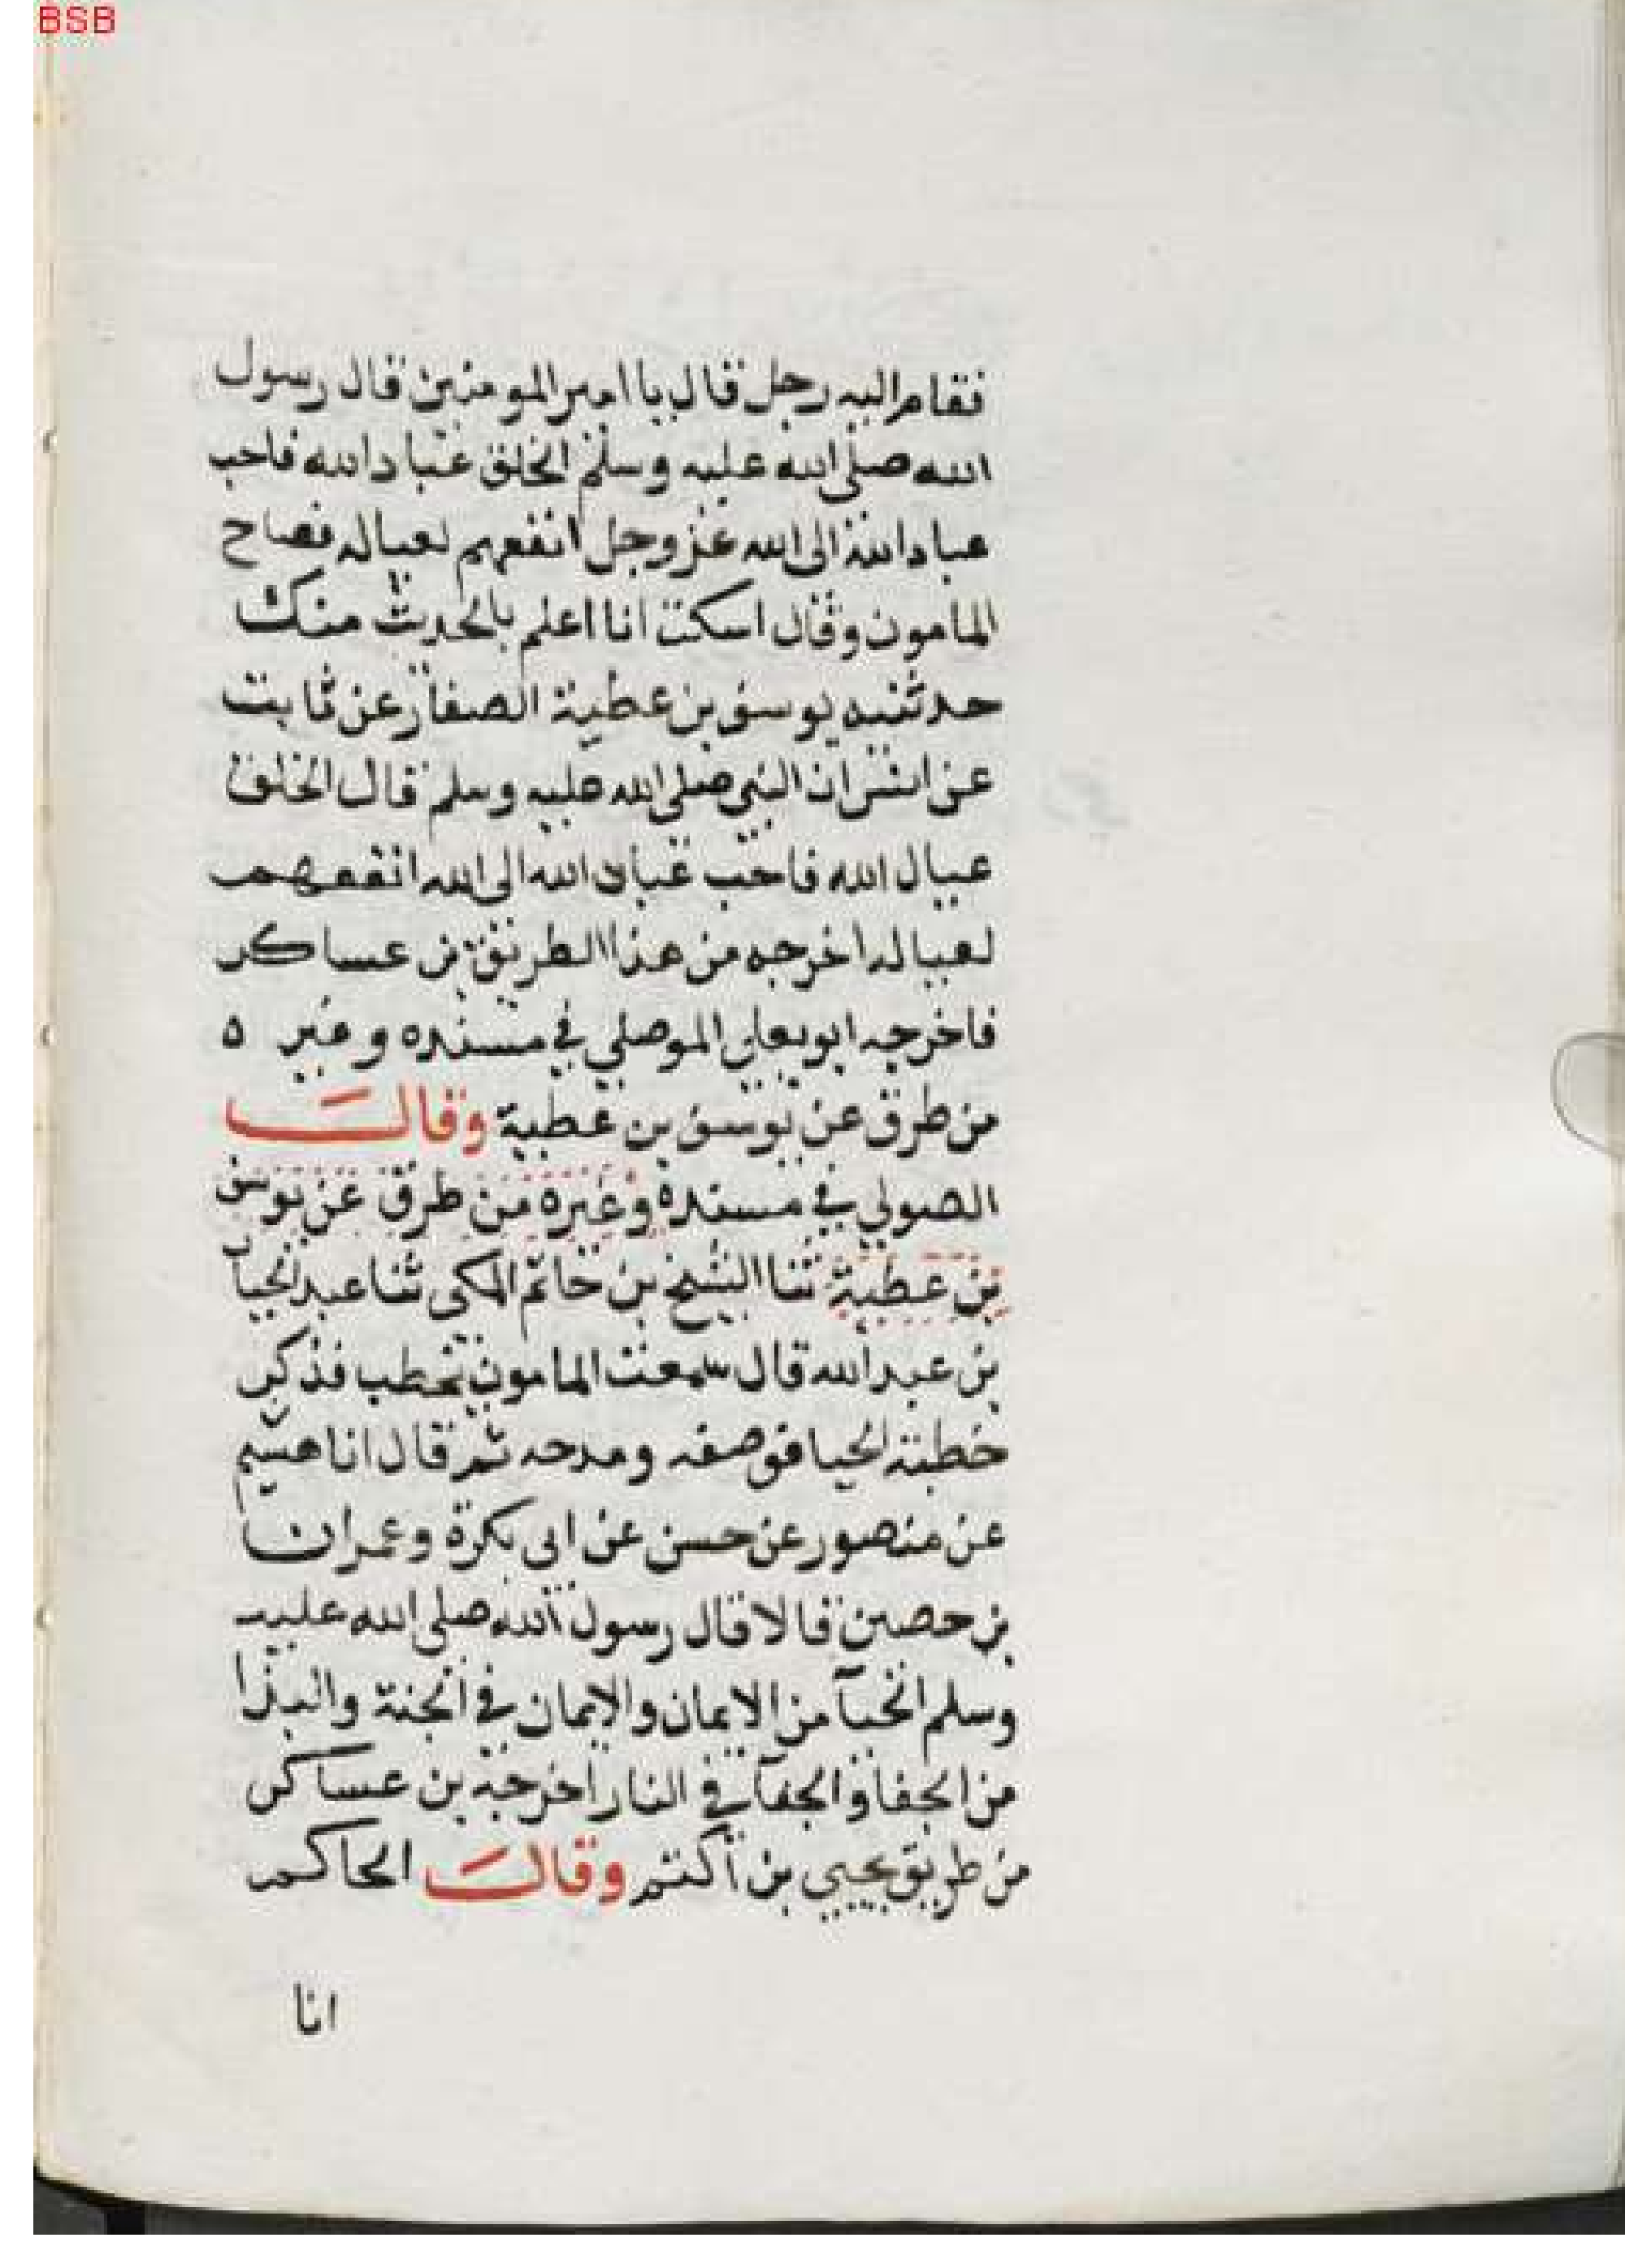 BSB
فقام اليه رجل قال يا امير المومنين قال رسول
الله صلى الله عليه وسلم الخلق عباد الله فاحب
عباد الله الى الله عز وجل انفعهم لعياله فصاح
المامون وقال اسكت انا اعلم بالحديث منك
حدثنيه يوسف بن عطية الصفار عن ثابت
عن انس ان النبي صلى الله عليه وسلم قال الخلق
عيال الله فاحب عباد الله الى الله انفعهم
لعياله اخرجه من هذا الطريق بن عساكر
فاخرجه ابو يعلى الموصلي في مسنده وغير ه
من طرق عن يوسف بن عطية وقال
الصولي في مسنده وغيره من طرق عن يوسف
بن عطية ثنا الشيخ بن حاتم المكى ثنا عبد الجبا
بن عبد الله قال سمعت المامون يخطب فذكر
خطبة الحيا فوصفه ومدحه ثم قال انا هشيم
عن منصور عن حسن عن ابى بكرة وعمران
بن حصين قالا قال رسول الله صلى الله عليه
وسلم الحيآ من الايمان والايمان في الجنة والبذا
من الجفا والجفآ في النار اخرجه بن عساكر
من طريق يحيي بن أكثم وقال الحاكم
انا